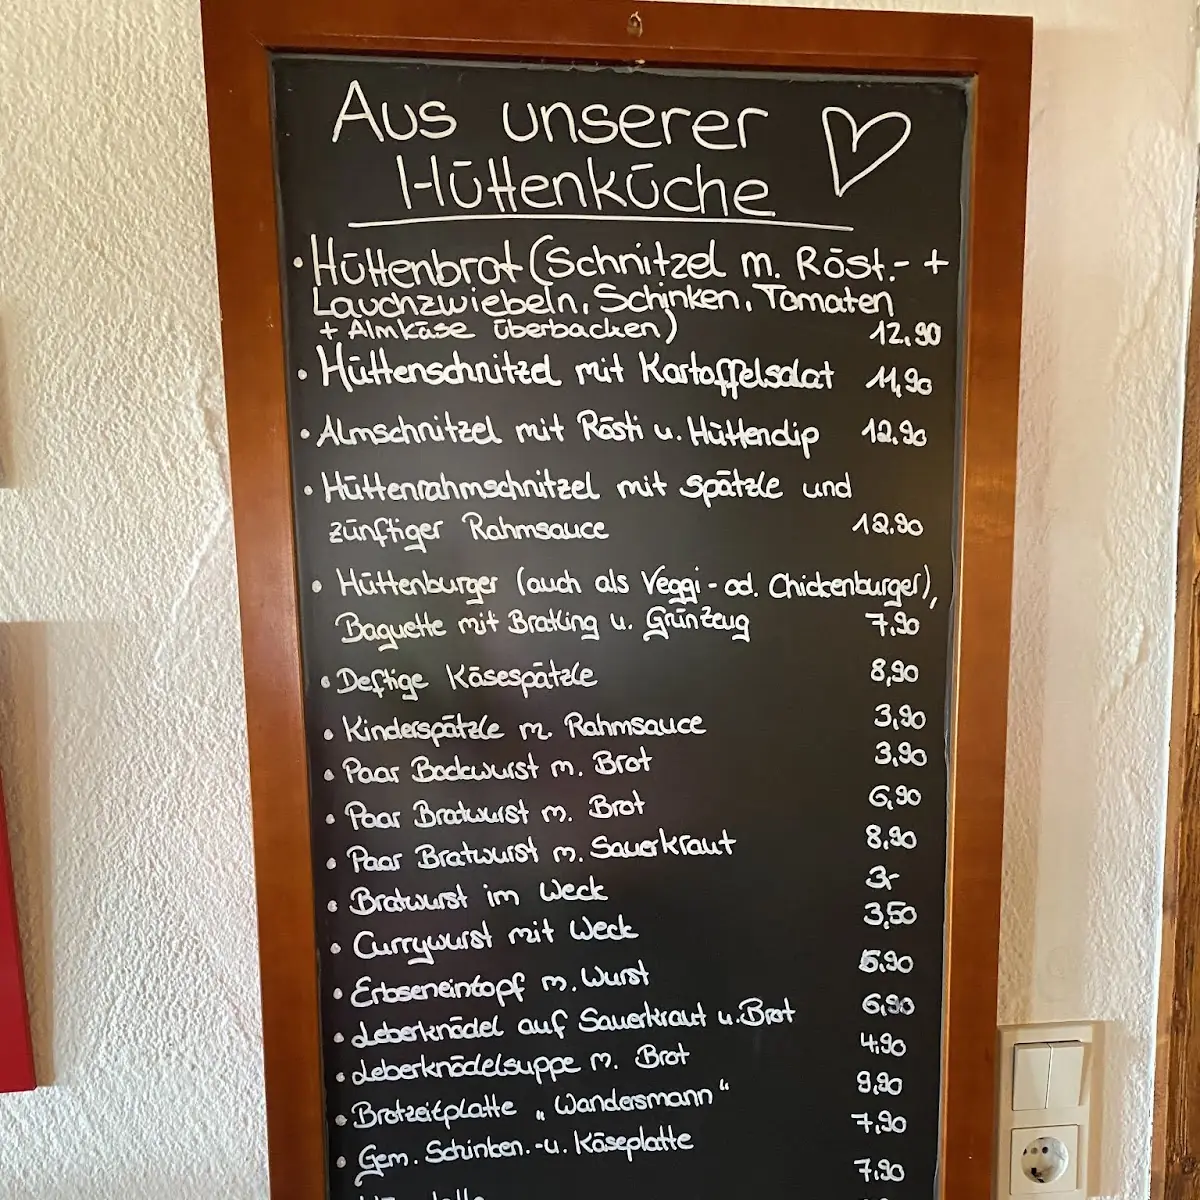 Aus unserer
Hüttenküche
• Hüttenbrot (Schnitzel m. Röst.- +
Lauchzwiebeln, Schinken, Tomaten
+ Almkäse überbacken) 12,90
• Hüttenschnitzel mit Kartoffelsalat 11,90
• Almschnitzel mit Rösti u. Hüttendip 12,90
• Hüttenrahmschnitzel mit Spätzle und
zünftiger Rahmsauce 12.90
• Hüttenburger (auch als Veggi- od. Chickenburger),
Baguette mit Bratling u. Grünzeug 7,90
• Deftige Käsespätzle 8,90
• Kinderspätzle m. Rahmsauce 3,90
• Paar Bockwurst m. Brot 3,90
• Paar Bratwurst m. Brot 6,90
• Paar Bratwurst m. Sauerkraut 8,90
• Bratwurst im Weck 3,-
• Currywurst mit Weck 3,50
• Erbseneintopf m. Wurst 5,90
• Leberknödel auf Sauerkraut u. Brot 6,90
• Leberknödelsuppe m. Brot 4,90
• Brotzeitplatte „Wandersmann“ 9,90
• Gem. Schinken.-u. Käseplatte 7,90
7,90